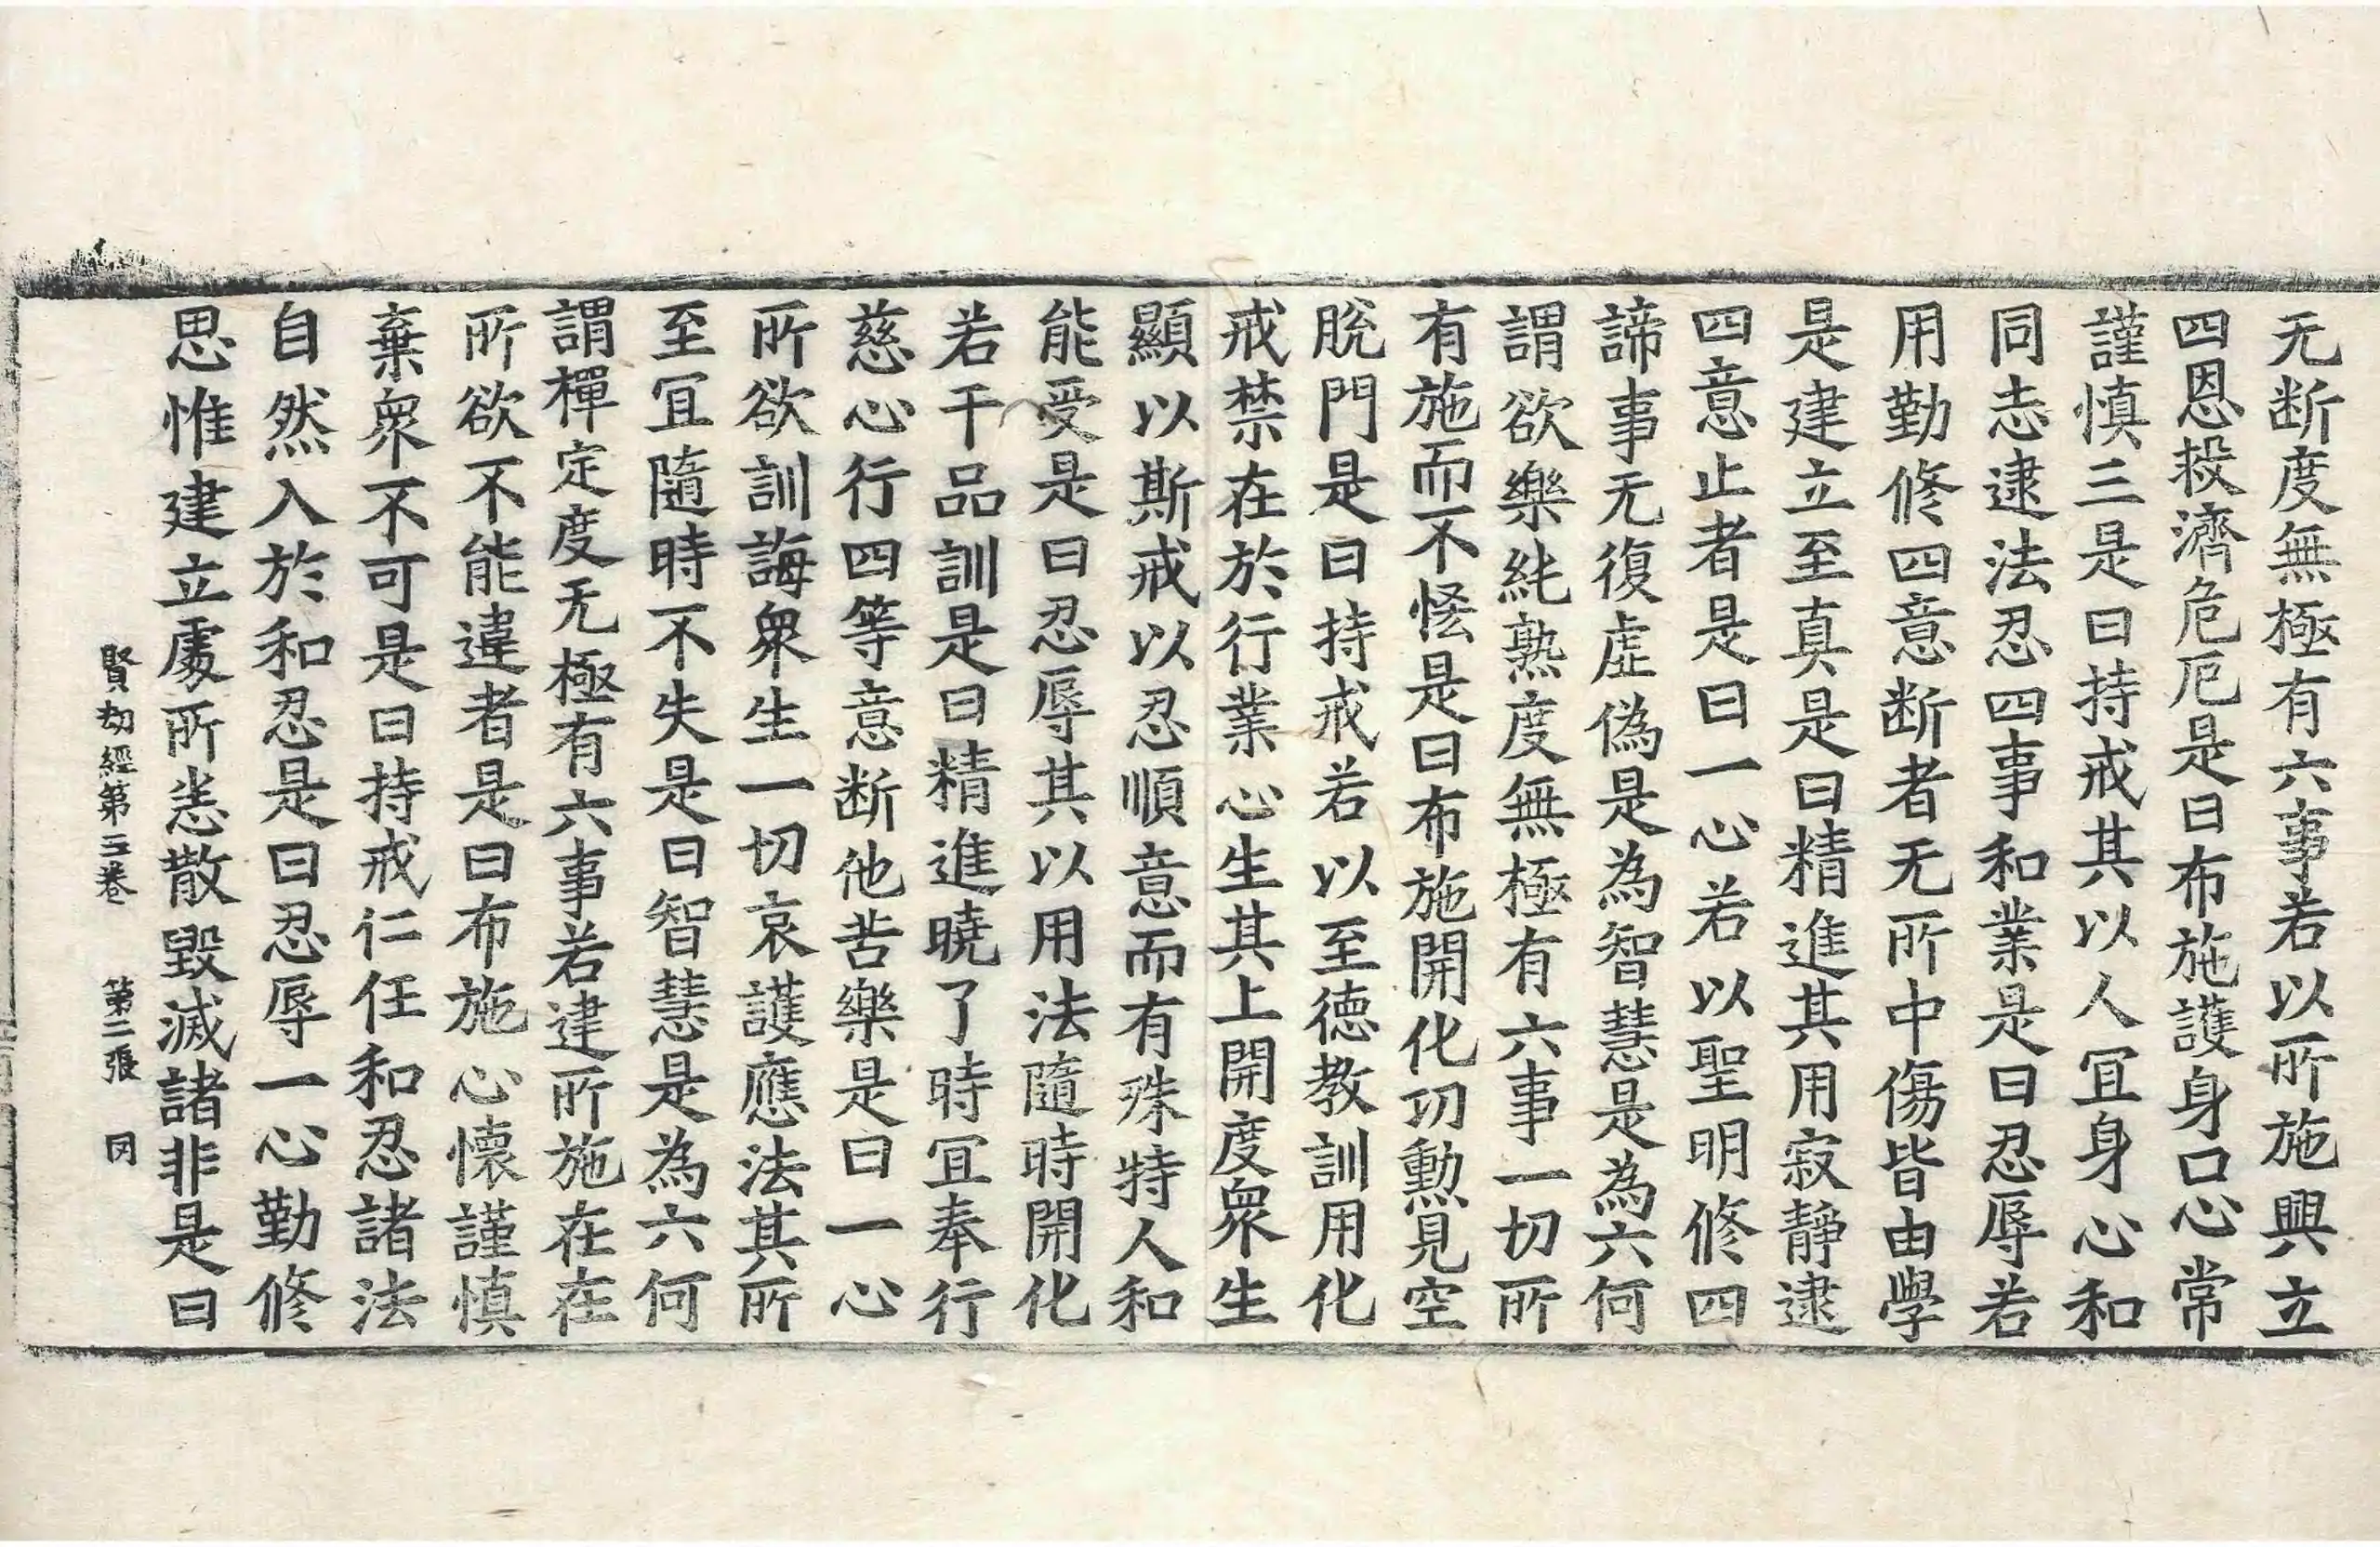 无断度無極有六事若以所施興立
四恩救濟危厄是曰布施護身口心常
謹慎三是曰持戒其以人宜身心和
同志逮法忍四事和業是曰忍辱若
用勤修四意断者无所中傷皆由學
是建立至真是曰精進其用寂靜逮
四意止者是曰一心若以聖明修四
諦事无復虛偽是為智慧是為六何
謂欲樂純熟度無極有六事一切所
有施而不恡是曰布施開化功勲見空
脱門是曰持戒若以至德教訓用化
戒禁在於行業心生其上開度衆生
顯以斯戒以忍順意而有殊特人和
能受是曰忍辱其以用法隨時開化
若干品訓是曰精進曉了時宜奉行
慈心行四等意断他苦樂是曰一心
所欲訓誨衆生一切哀護應法其所
至宜隨時不失是曰智慧是為六何
謂禪定度无極有六事若建所施在在
所欲不能違者是曰布施心懷謹慎
棄衆不可是曰持戒仁任和忍諸法
自然入於和忍是曰忍辱一心勤修
思惟建立處所恙散毀滅諸非是曰
賢劫經第三卷 第二張